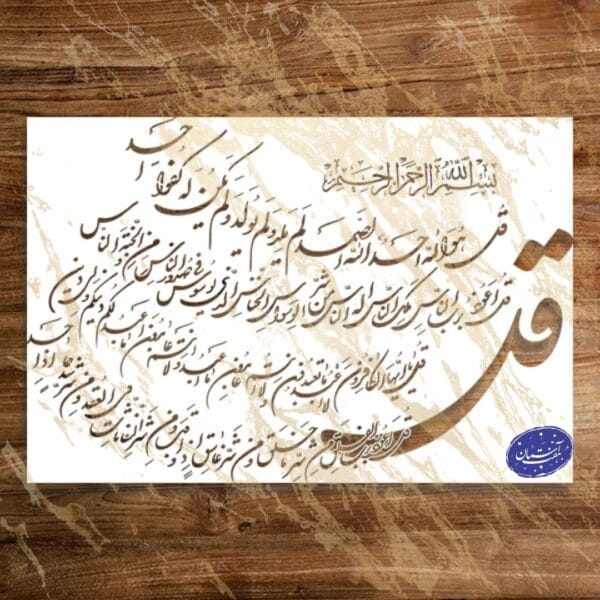 بسم الله الرحمن الرحيم
قل هو الله احد الله الصمد لم يلد ولم يولد ولم يكن له كفوا احد
قل اعوذ برب الناس ملك الناس اله الناس من شر الوسواس الخناس الذي يوسوس في صدور الناس من الجنة والناس
قل يا ايها الكافرون لا اعبد ما تعبدون ولا انتم عابدون ما اعبد ولا انتم عابدون ما اعبد لكم دينكم ولي دين
قل اعوذ برب الفلق من شر ما خلق ومن شر غاسق اذا وقب ومن شر النفاثات في العقد ومن شر حاسد اذا حسد
قل
هفت آسمان